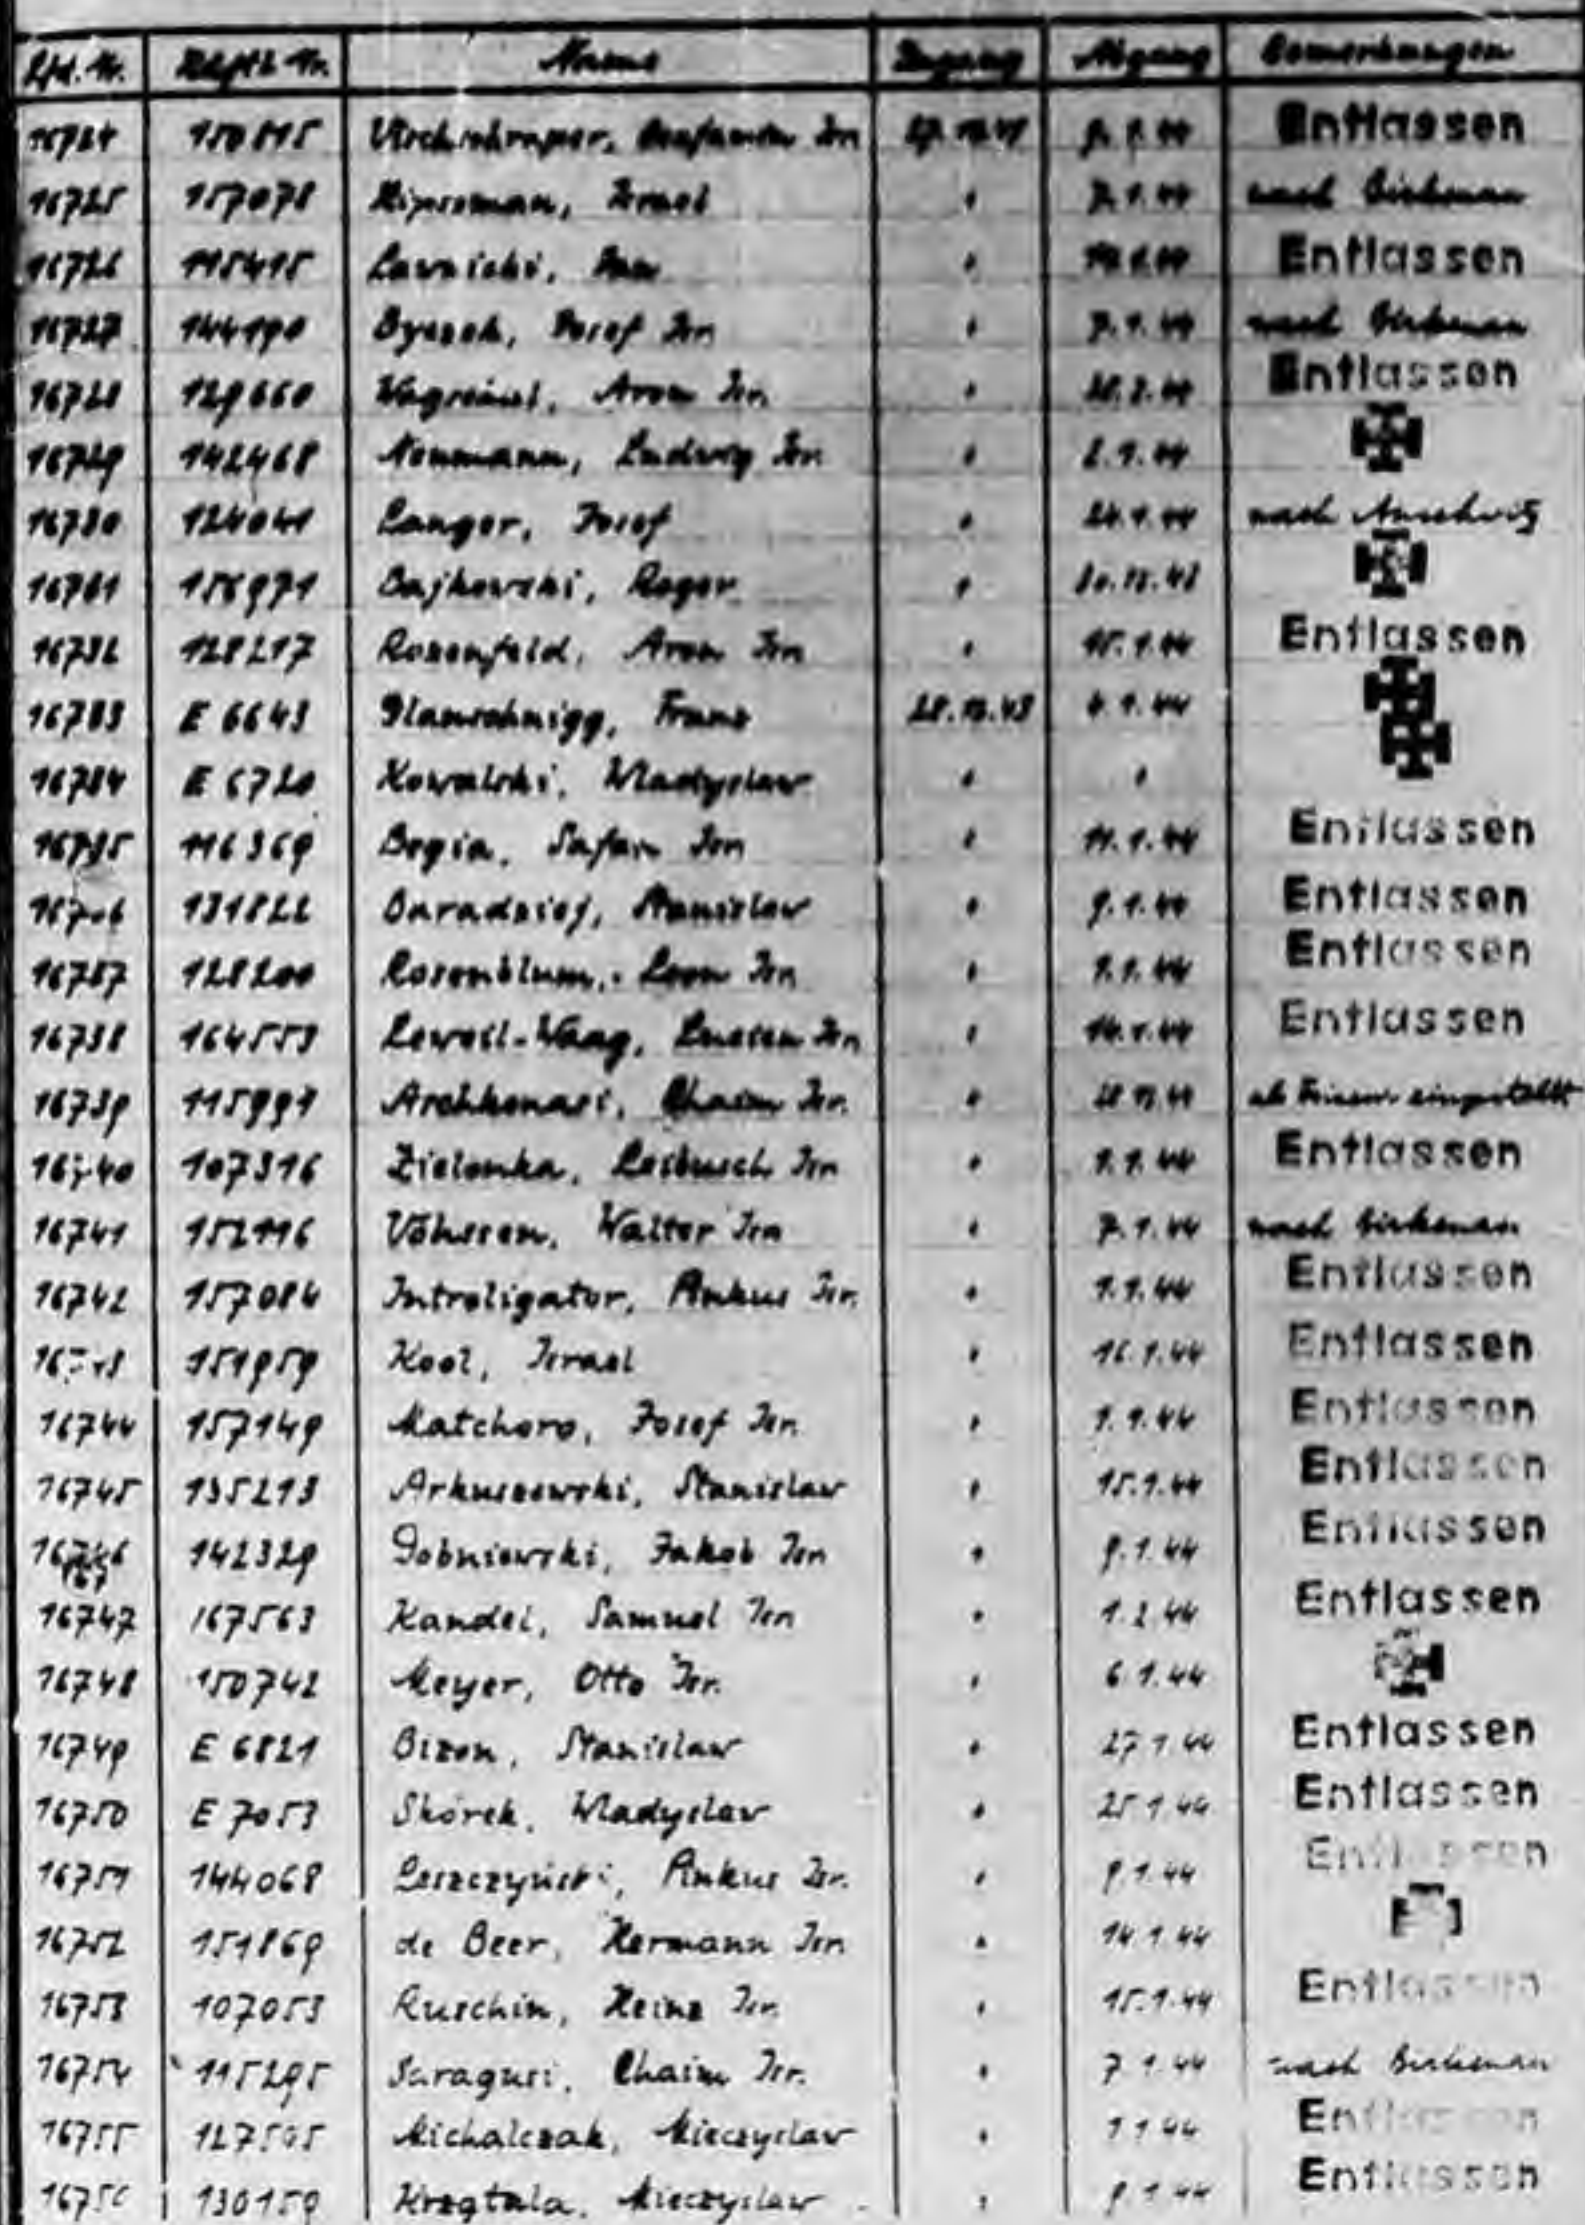 Lfd. Nr. Häftl. Nr. Name Zugang Abgang Bemerkungen
16724 150815 Isr. Entlassen
16725 157078 Israel " 7.1.44 nach Birkenau
16726 115415 Lawnicki, " Entlassen
16727 144190 Josef Isr. " 7.1.44 nach Birkenau
16728 129660 Aron Isr. " Entlassen
16729 142468 Neumann, Ludwig Isr. " 2.1.44
16730 124041 Langer, Josef " 24.1.44 nach Auschwitz
16731 156971 Bajkowski, Roger " 30.12.43
16732 128217 Rosenfeld, Aron Isr. " 15.1.44 Entlassen
16733 E 6643 Glanschnigg, Franz 28.12.43 6.1.44
16734 E 6720 Kowalski, Wladyslaw " "
16735 116369 Begia, Isr. " 11.1.44 Entlassen
16736 131822 Baradziej, Stanislaw " 9.1.44 Entlassen
16737 128200 Rosenblum, Leon Isr. " 9.1.44 Entlassen
16738 164553 Lucien Isr. " 14.1.44 Entlassen
16739 115997 Aschkenasi, Chaim Isr. " eingestellt
16740 107316 Zielonka, Leibusch Isr. " 9.1.44 Entlassen
16741 152116 Vohssen, Walter Isr. " 7.1.44 nach Birkenau
16742 157084 Introligator, Pinkus Isr. " 9.1.44 Entlassen
16743 151959 Kool, Israel " 16.1.44 Entlassen
16744 157149 Matchoro, Josef Isr. " 9.1.44 Entlassen
16745 135213 Arkuszewski, Stanislaw " 15.1.44 Entlassen
16746 142329 Gobniewski, Jakob Isr. " 9.1.44 Entlassen
16747 167563 Kandel, Samuel Isr. " 1.2.44 Entlassen
16748 150742 Meyer, Otto Isr. " 6.1.44
16749 E 6821 Bizon, Stanislaw " 27.1.44 Entlassen
16750 E 7053 Skórek, Wladyslaw " 25.1.44 Entlassen
16751 144068 Leszczyński, Pinkus Isr. " 9.1.44 Entlassen
16752 151869 de Beer, Hermann Isr. " 14.1.44
16753 107053 Ruschin, Heinz Isr. " 15.1.44 Entlassen
16754 115295 Saragusi, Chaim Isr. " 7.1.44 nach Birkenau
16755 127505 Michalczak, Mieczyslaw " 9.1.44 Entlassen
16756 130159 Mieczyslaw " 9.1.44 Entlassen